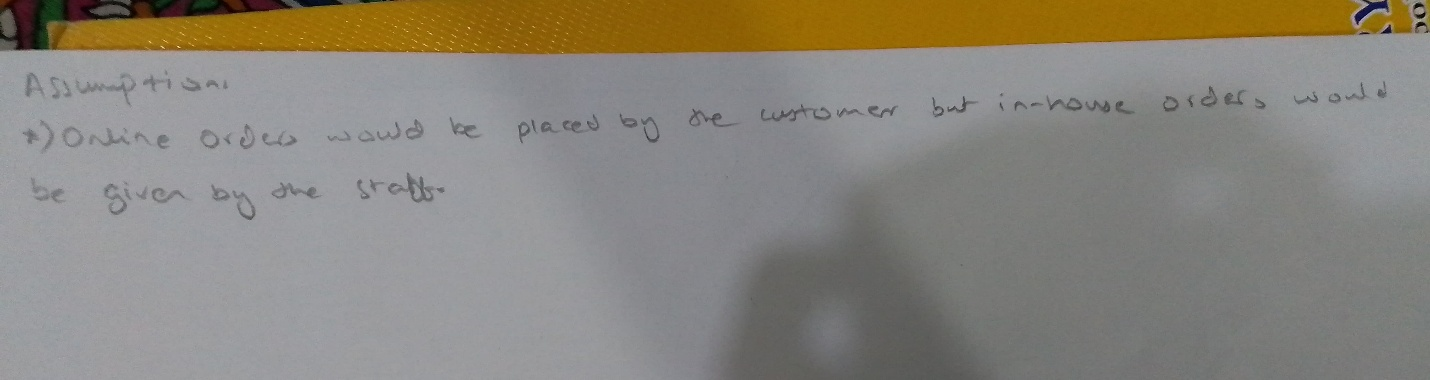 Assumptions
*) Online orders would be placed by the customer but in-house orders would
be given by the staff.